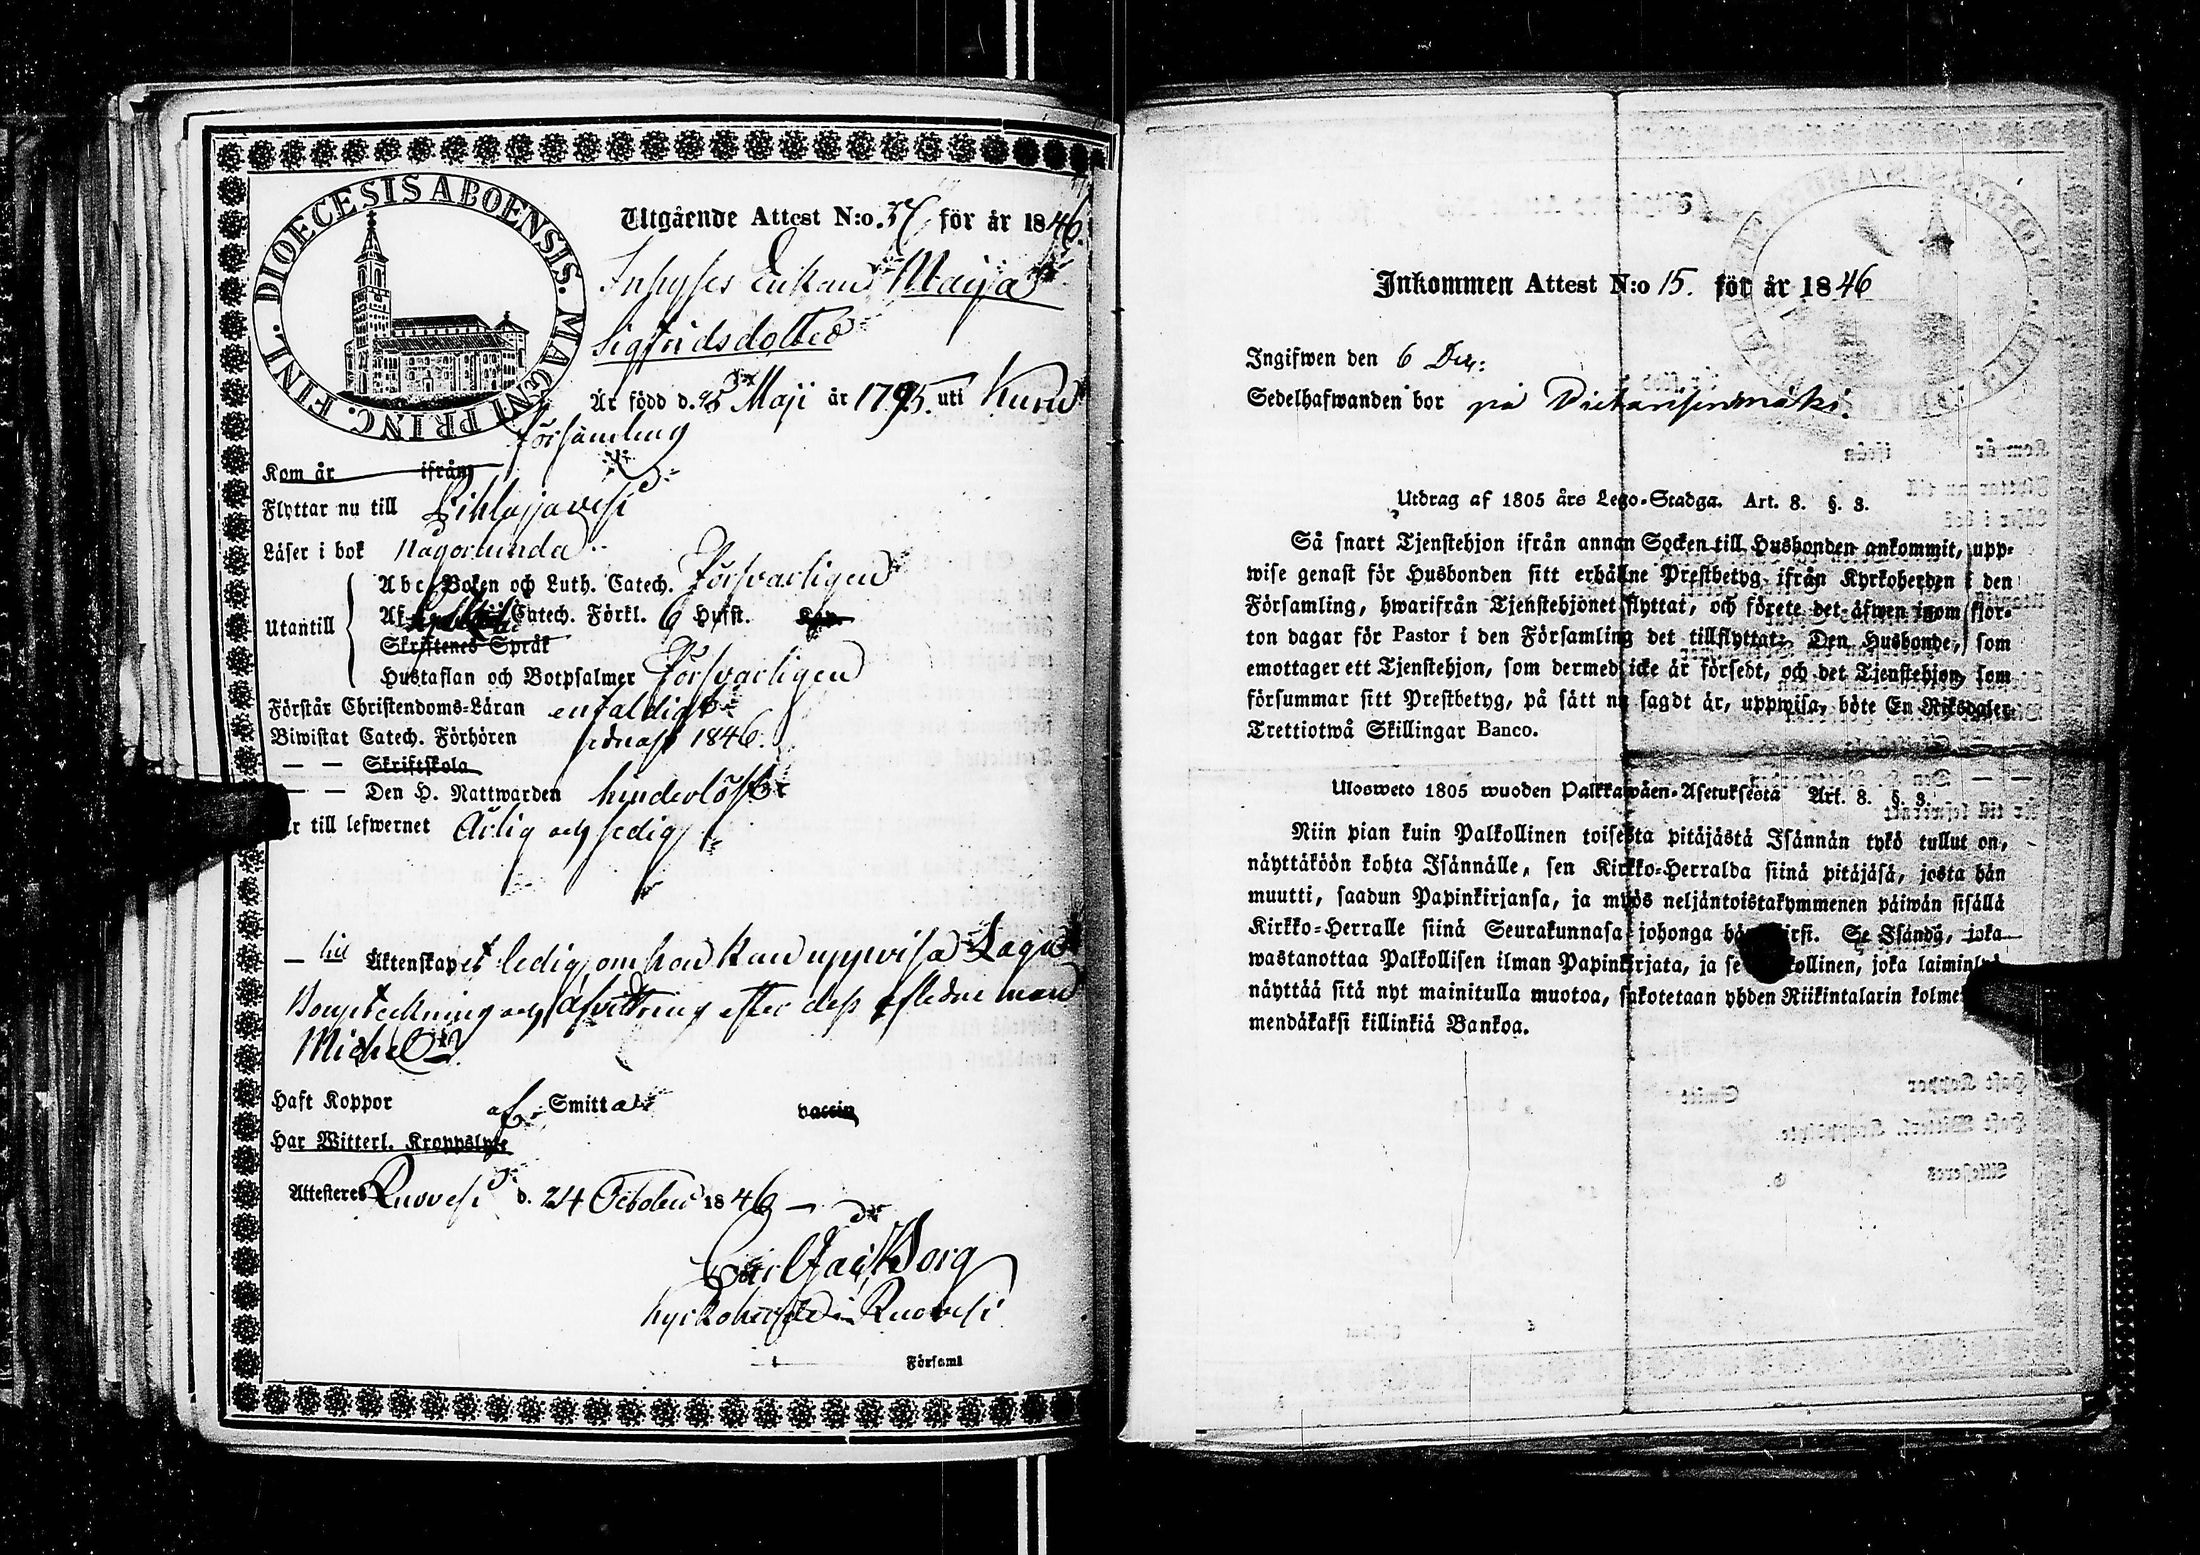 DIOECESIS ABOENSIS. MAGNI PRINC. FINL.
Utgående Attest N:o 37 för år 1846.
Inhyses Enkan Maija
Sigfridsdotter
Är född d. 25 Maji år 1795. uti Kuru
församling
Kom år ifrån
Flyttar nu till Pihlajavesi
Läser i bok någorlunda
Utantill
A b c Boken och Luth. Catech. Försvarligen
Af Catech. Förkl. 6 Hufst. Kap.
Skriftenes Språk
Hustaflan och Botpsalmer Försvarligen
Förstår Christendoms-Läran enfaldigt
Biwistat Catech. Förhören sednast 1846.
— — Skriftskola
— — Den H. Nattwarden hinderlöst
är till lefwernet Ärlig och sedig
— till Äktenskapet ledig, om hon kan uppvisa Laga
Bouptekning och afvittring efter dess aflidne man
Michel
Haft Koppor af Smitta vaccin
Har Witterl. Kroppslyte
Attesteres Ruovesi d. 24 October 1846 —
Carl Jac Borg
Kyrkoherde i Ruovesi
Församl
Inkommen Attest N:o 15. för år 1846
Ingifwen den 6 Dec:
Sedelhafwanden bor på
Utdrag af 1805 års Lego-Stadga. Art. 8. §. 3.
Så snart Tjenstehjon ifrån annan Socken till Husbonden ankommit, upp-
wise genast för Husbonden sitt erhållne Prestbetyg, ifrån Kyrkoherden i den
Församling, hwarifrån Tjenstehjonet flyttat, och förete det äfwen inom fjor-
ton dagar för Pastor i den Församling det tillflyttat. Den Husbonde, som
emottager ett Tjenstehjon, som dermed icke är försedt, och det Tjenstehjon, som
försummar sitt Prestbetyg, på sätt nu sagdt är, uppwisa, böte En Riksdaler
Trettiotwå Skillingar Banco.
Ulosweto 1805 wuoden Palkkawäen-Asetuksesta Art. 8. §. 3.
Niin pian kuin Palkollinen toisesta pitäjästä Isännän tykö tullut on,
näyttäköön kohta Isännälle, sen Kirkko-Herralda siinä pitäjäsä, josta hän
muutti, saadun Papinkirjansa, ja myös neljäntoistakymmenen päiwän sisällä
Kirkko-Herralle siinä Seurakunnasa johonga hän siirsi. Se Isändä, joka
wastanottaa Palkollisen ilman Papinkirjata, ja se Palkollinen, joka laiminlyö
näyttää sitä nyt mainitulla muotoa, sakotetaan yhden Riikintalarin kolme
mendäkaksi killinkiä Bankoa.